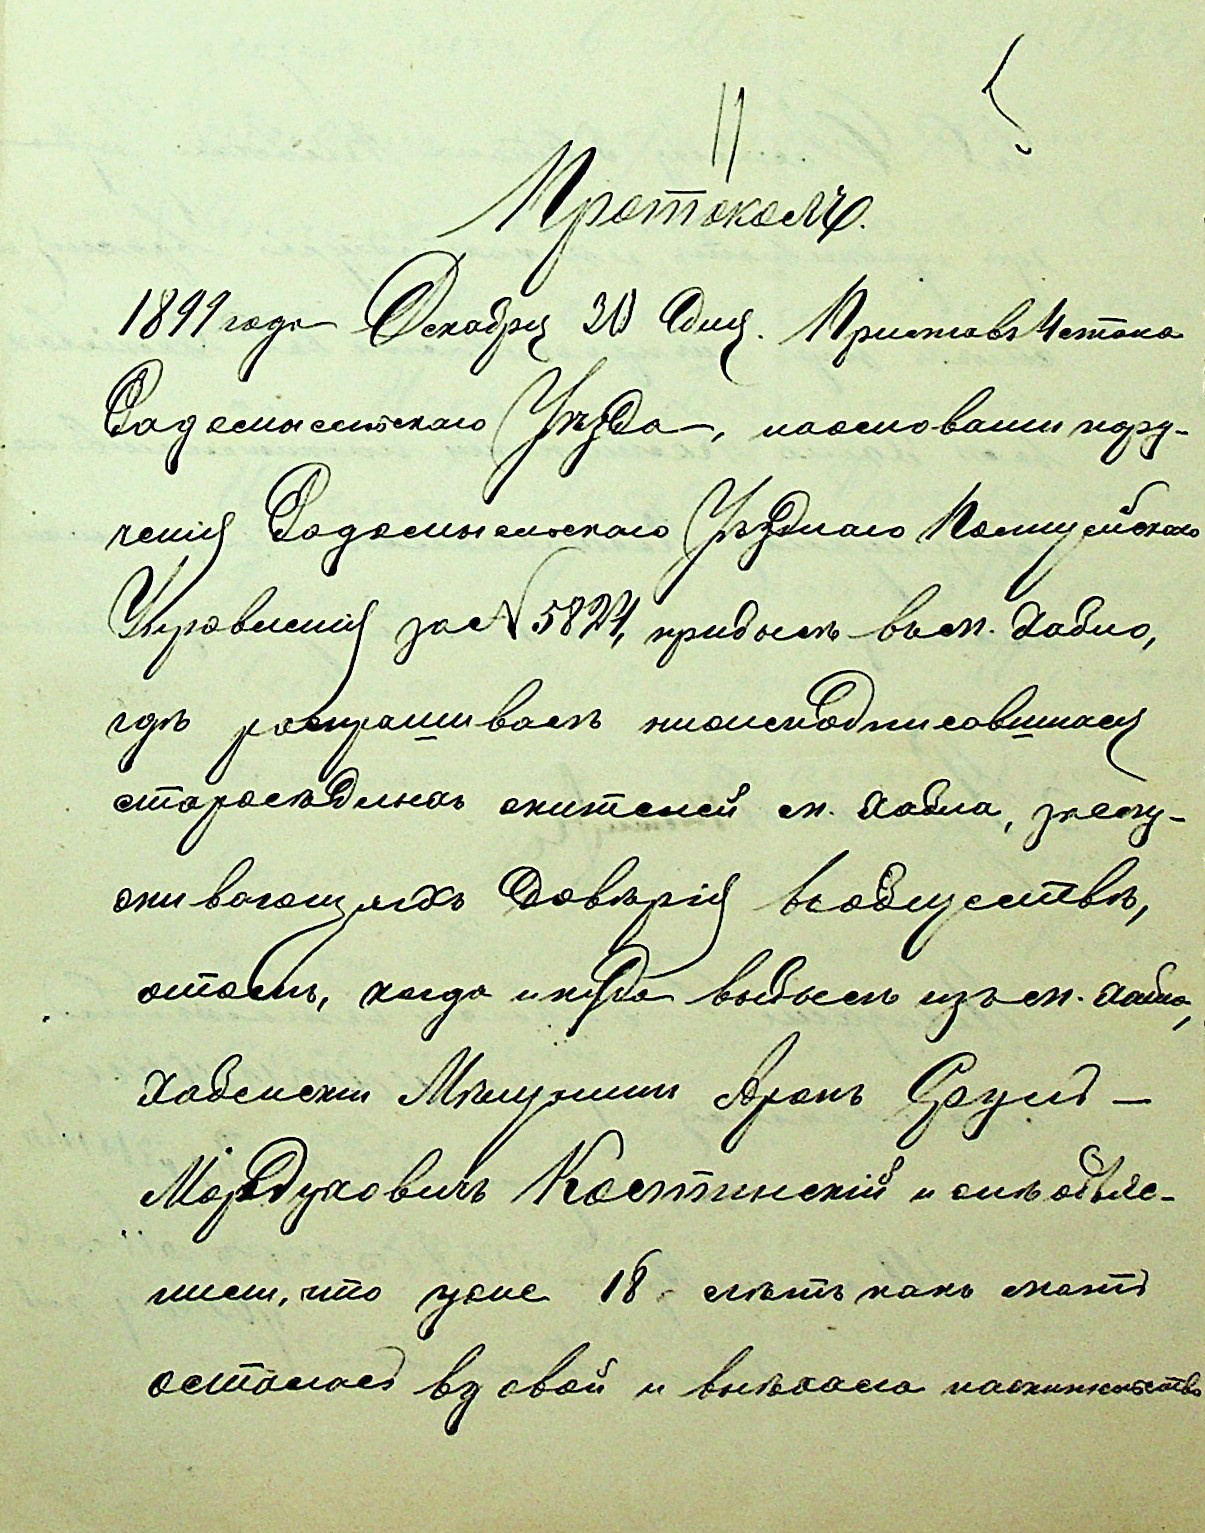 Протоколъ.
1899 года Декабря 30 Дня. Приставъ 4 стана
Радомысльскаго Уѣзда, на основаніи пору-
ченія Радомысльскаго Уѣзднаго Полицейскаго
Управленія за № 5824, прибылъ въ м. Хабно,
гдѣ распрашивалъ нижеподписавшихся
старосѣдльцовъ жителей м. Хабна, заслу-
живающихъ Довѣрія въ обществѣ,
о томъ, когда и куда выбылъ изъ м. Хабна,
Хабенскій Мѣщанинъ Аронъ Сруль-
Мордуховичъ Костинскій и они объяс-
нили, что уже 18 лѣтъ какъ мать
осталась вдовой и выѣхала на жительство